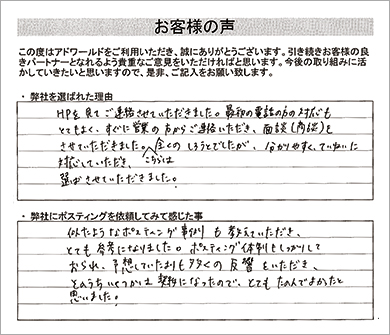 お客様の声
この度はアドワールドをご利用いただき、誠にありがとうございます。引き続きお客様の良
きパートナーとなれるよう貴重なご意見をいただければと思います。今後の取り組みに活
かしていきたいと思いますので、是非、ご記入をお願い致します。
・弊社を選ばれた理由
HPを見てご連絡させていただきました。最初の電話の方の対応も
とてもよく、すぐに営業の方からご連絡いただき、面談(商談)を
させていただきました。全くのしろうとでしたが、分かりやすく、ていねいに
対応していただき、こちらは
選ばさせていただきました。
・弊社にポスティングを依頼してみて感じた事
似たようなポスティング事例も教えていただき、
とても参考になりました。ポスティング体制もしっかりして
おられ、予想していたよりも多くの反響をいただき、
そのうちいくつかは契約になったので、とてもたのんでよかったと
思いました。